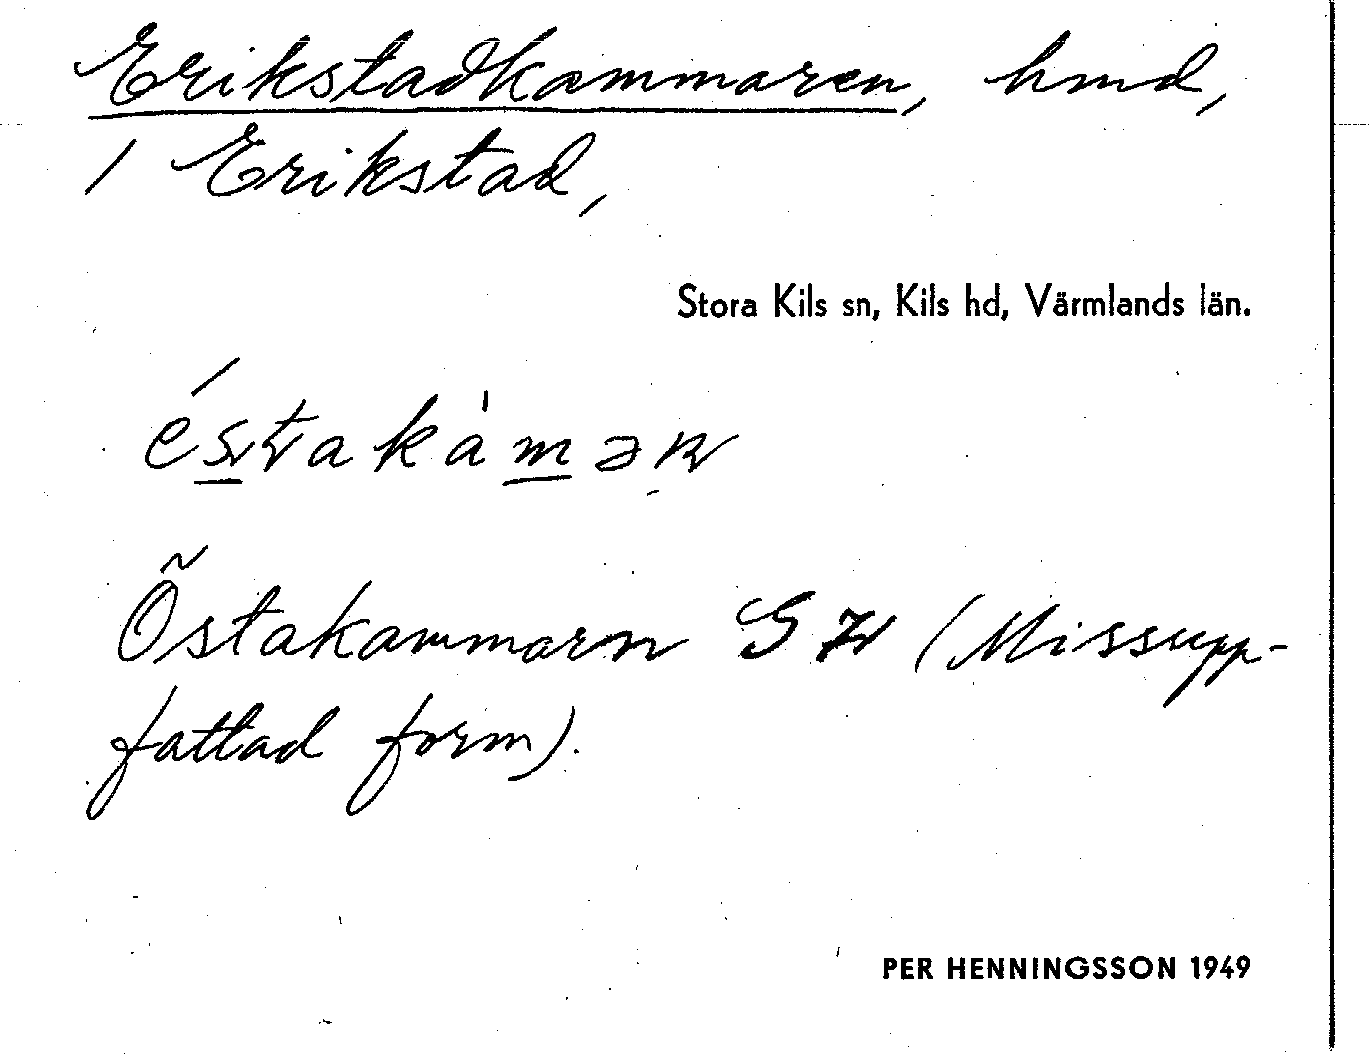 Erikstadkammaren, hmd,
/ Erikstad,
Stora Kils sn, Kils hd, Värmlands län.
éstakàmən
Õstakammarn (Missupp-
fattad form).
PER HENNINGSSON 1949